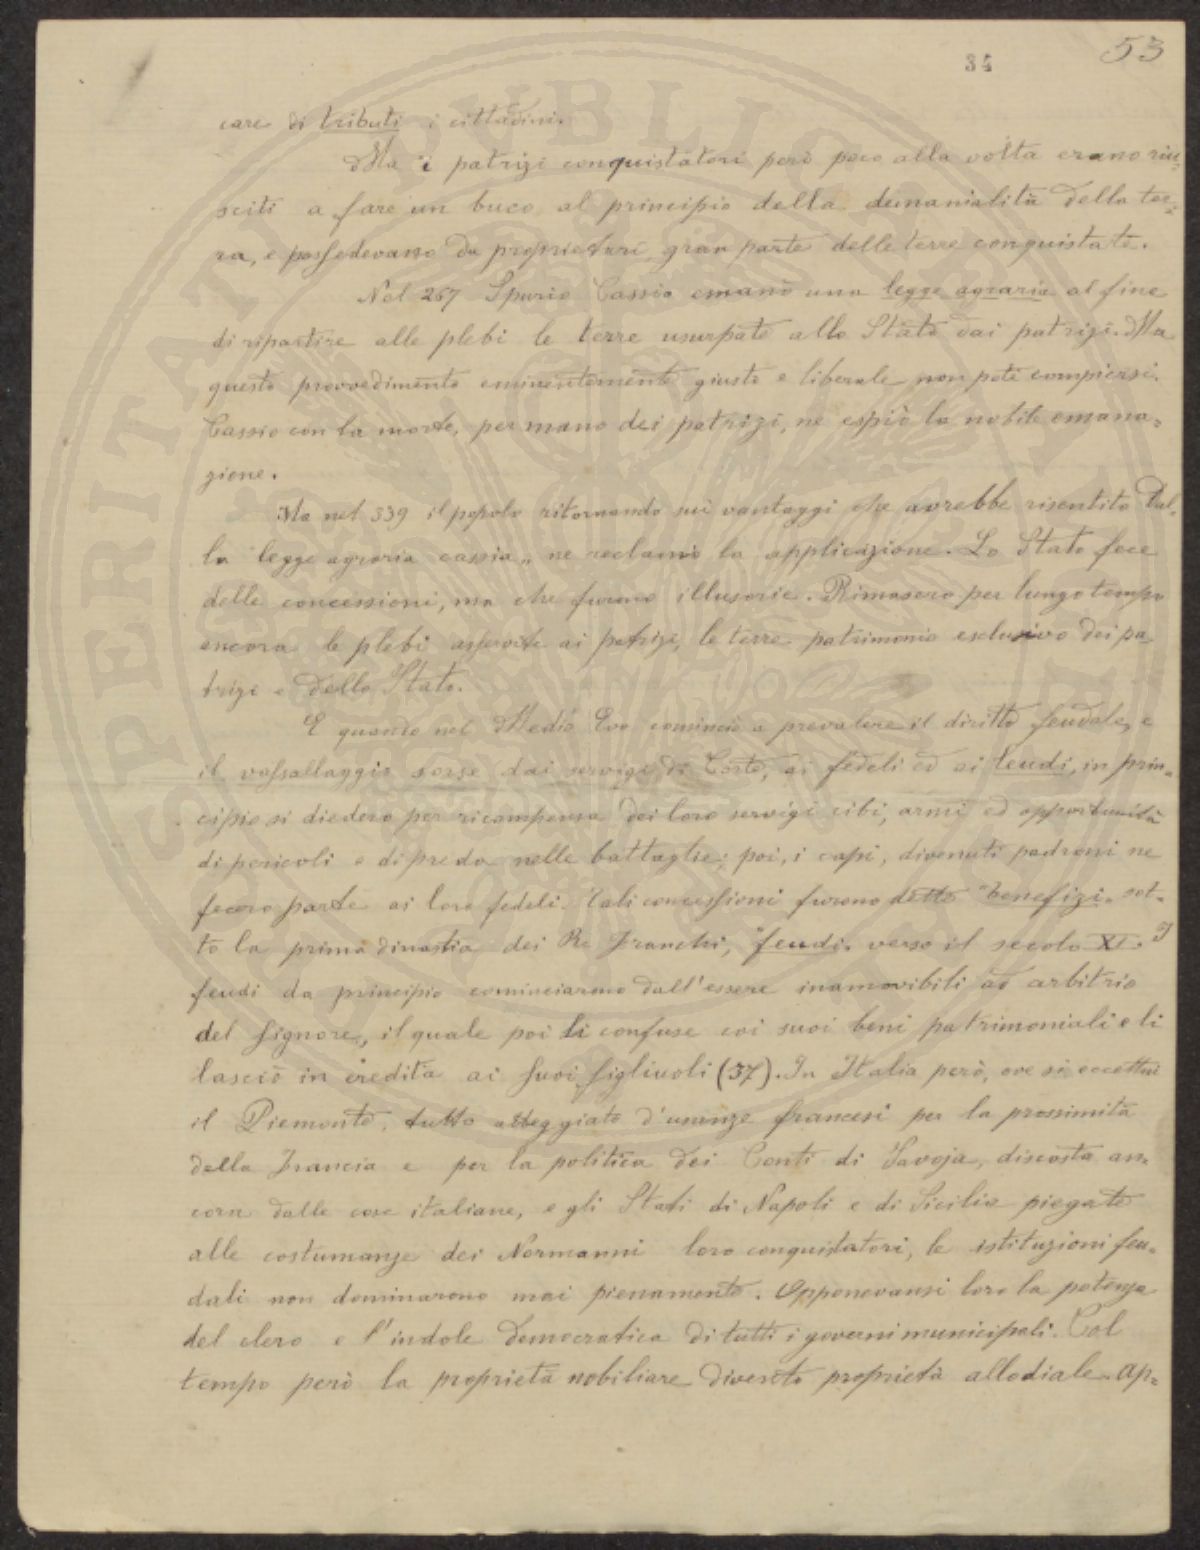 34
53
care di tributi i cittadini.
Ma i patrizi conquistatori però poco alla volta erano riu=
sciti a fare un buco al principio della demanialità della ter=
ra, e possedevano da proprietari gran parte delle terre conquistate.
Nel 267 Spurio Cassio emanò una legge agraria al fine
di ripartire alle plebi le terre usurpate allo Stato dai patrizi. Ma
questo provvedimento eminentemente giusto e liberale non potè compiersi.
Cassio con la morte, per mano dei patrizi, ne espiò la nobile emana=
zione.
Ma nel 339 il popolo ritornando sui vantaggi che avrebbe risentito dal=
la legge agraria cassia„ ne reclamò la applicazione. Lo Stato fece
delle concessioni, ma che furono illusorie. Rimasero per lungo tempo
ancora le plebi asservite ai patrizi, le terre patrimonio esclusivo dei pa
trizi e dello Stato.
E quando nel Medio Evo cominciò a prevalere il diritto feudale, e
il vassallaggio sorse dai servigi di Corte, ai fedeli ed ai leudi, in prin=
cipio si diedero per ricompensa dei loro servigi cibi, armi ed opportunità
di pericoli e di preda nelle battaglie; poi, i capi, divenuti padroni ne
fecero parte ai loro fedeli. Tali concessioni furono dette "benefizi„ sot=
to la prima dinastia dei Re Franchi, "feudi„ verso il secolo XI. I
feudi da principio cominciarono dall'essere inamovibili ad arbitrio
del Signore, il quale poi li confuse coi suoi beni patrimoniali e li
lasciò in eredità ai suoi figliuoli (37). In Italia però, ove si eccettui
il Piemonte, tutto atteggiato d'usanze francesi per la prossimità
della Francia e per la politica dei Conti di Savoja, discosta an=
cora dalle cose italiane, e gli Stati di Napoli e di Sicilia piegate
alle costumanze dei Normanni loro conquistatori, le istituzioni feu=
dali non dominarono mai pienamente. Opponevansi loro la potenza
del clero e l'indole democratica di tutti i governi municipali. Col
tempo però la proprietà nobiliare diventò proprietà allodiale. Ap=